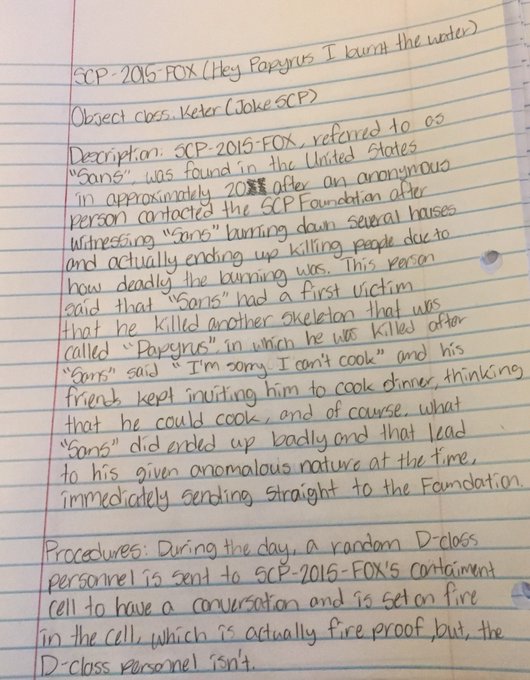 SCP-2015-FOX (Hey Papyrus I burnt the water)
Object class: Keter (Joke SCP)
Description: SCP-2015-FOX, referred to as
"Sans", was found in the United States
in approximately 20 after an anonymous
person contacted the SCP Foundation after
witnessing "Sans" burning down several houses
and actually ending up killing people due to
how deadly the burning was. This person
said that "Sans" had a first victim
that he killed another skeleton that was
called "Papyrus", in which he was killed after
"Sans" said "I'm sorry I can't cook" and his
friends kept inviting him to cook dinner, thinking
that he could cook, and of course, what
"Sans" did ended up badly and that lead
to his given anomalous nature at the time,
immediately sending straight to the Foundation.
Procedures: During the day, a random D-class
personnel is sent to SCP-2015-FOX's contaiment
cell to have a conversation and is set on fire
in the cell, which is actually fire proof, but, the
D-class personnel isn't.